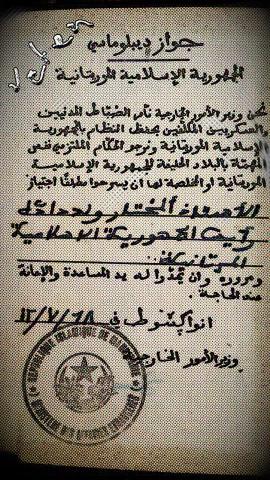 جواز ديبلوماسي
الجمهورية الإسلامية الموريتانية
نحن وزير الأمور الخارجية نأمر الضباط المدنيين
والعسكريين المكلفين بحفظ النظام بالجمهورية
الإسلامية الموريتانية ونرجو الحكام
بالبلاد الحليفة للجمهورية الإسلامية
الموريتانية أو المخلصة لها أن يسرحوا مطلقا اجتياز
المختار ولد داداه
رئيس الجمهورية الإسلامية
الموريتانية
ومروره وأن تمدوا له يد المساعدة والإعانة
عند الحاجة.
انواكشوط في ١٢/٧/٦٨
وزير الأمور الخارجية
REPUBLIQUE ISLAMIQUE DE MAURITANIE
MINISTERE DES AFFAIRES ETRANGERES